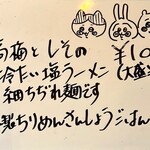 南梅としその
¥10
冷たい塩ラーメン
(大盛
細ちぢれ麺です
製ちりめんさんしょうごはん